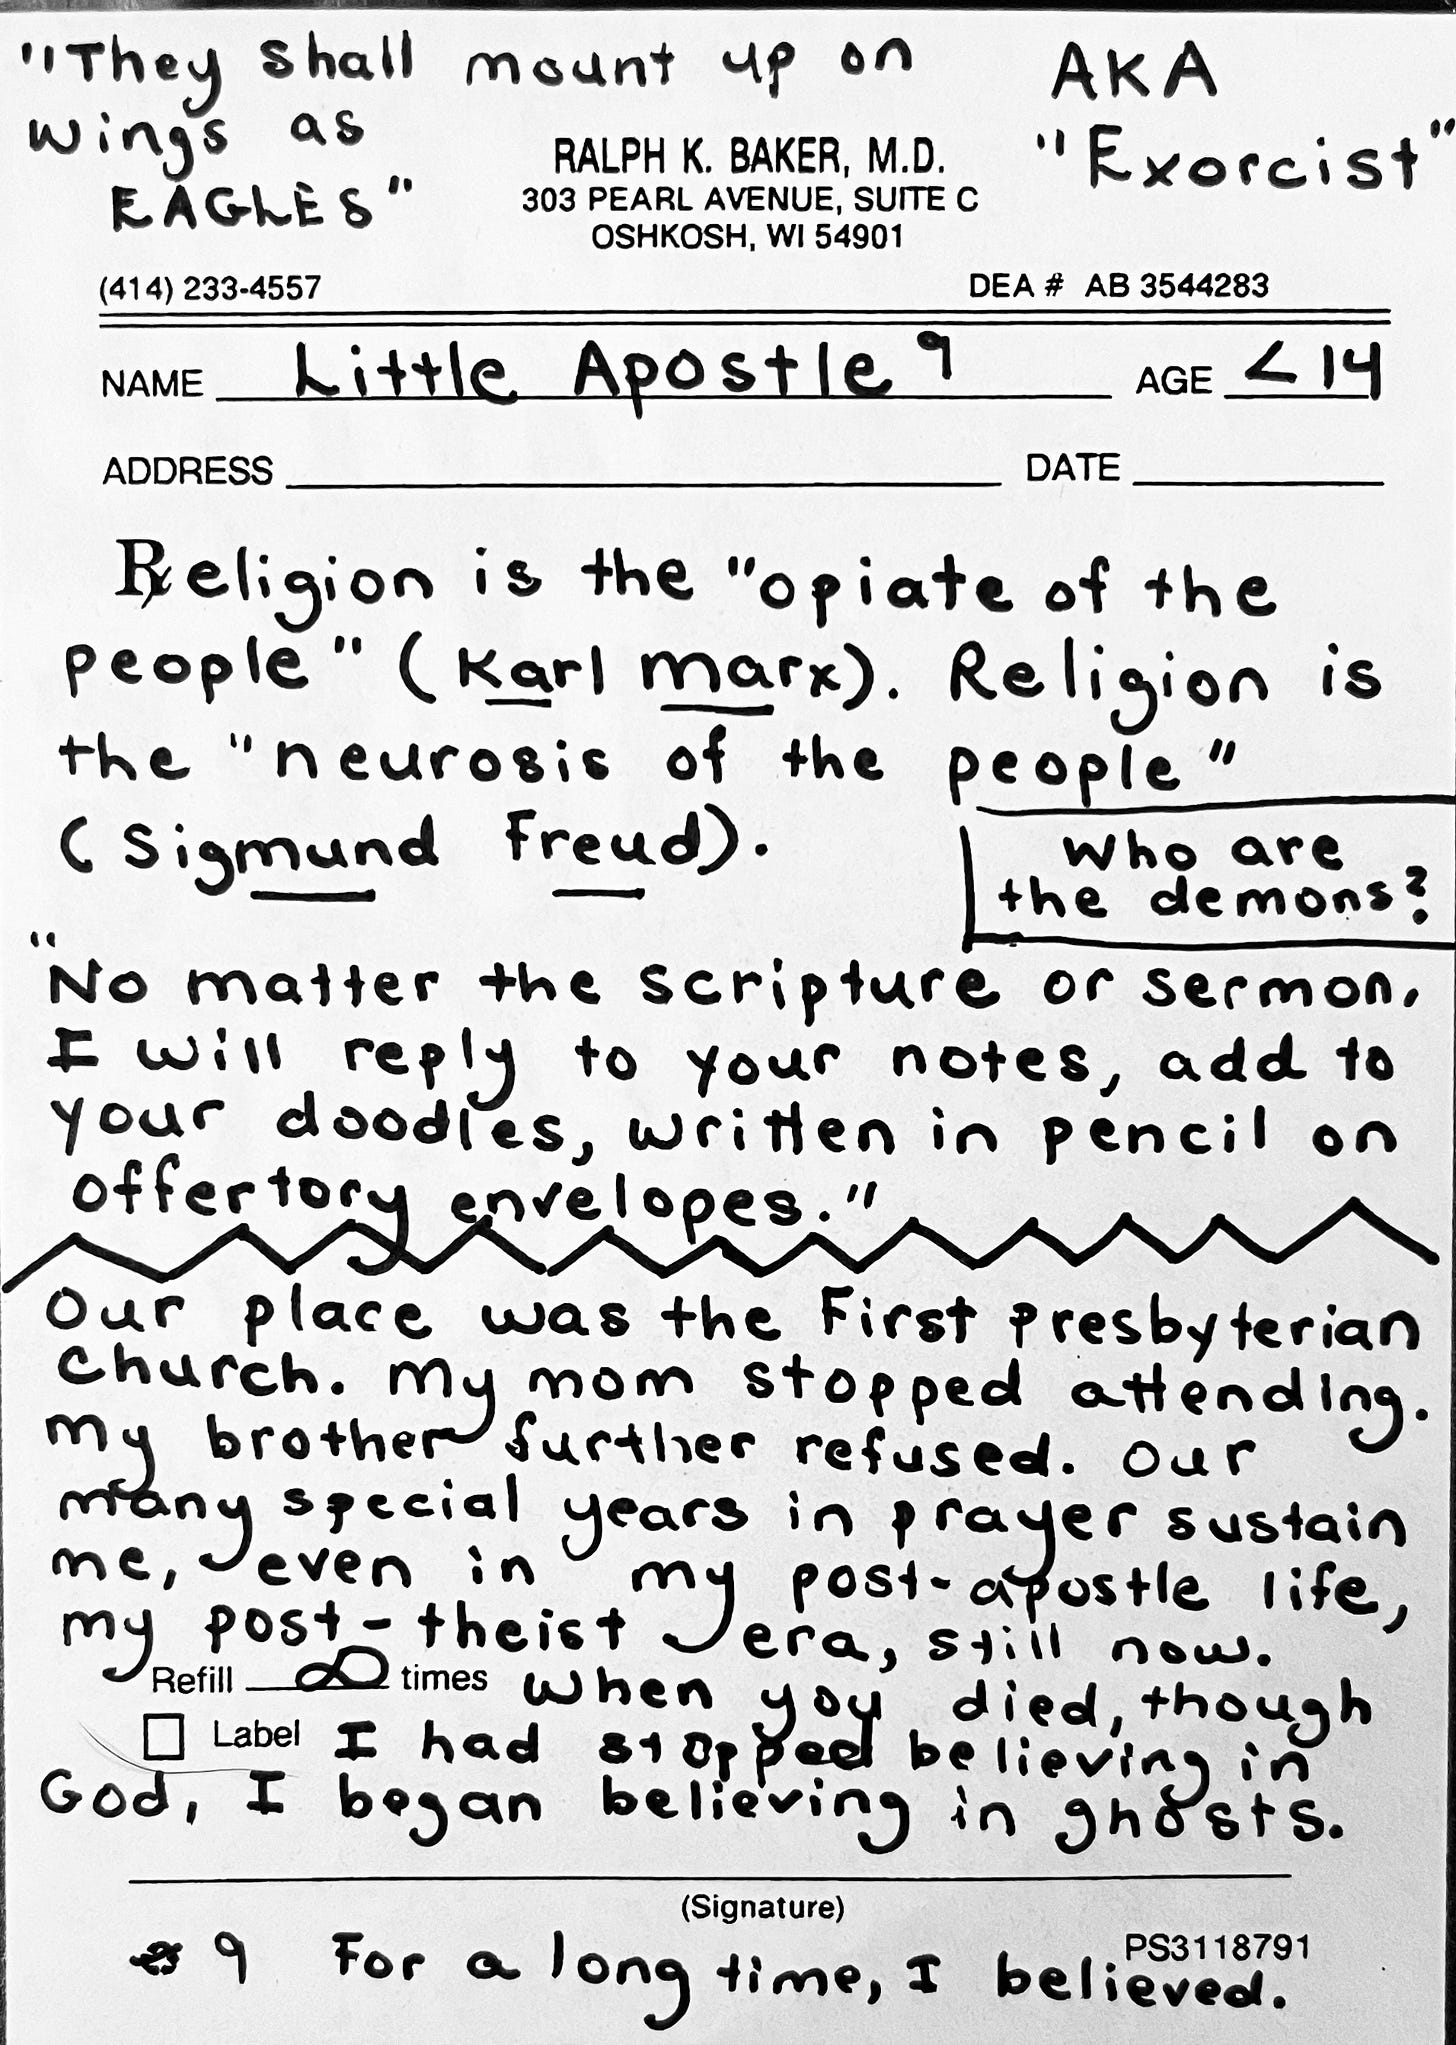 "They shall mount up on
wings as
EAGLES"
AKA
"Exorcist"
RALPH K. BAKER, M.D.
303 PEARL AVENUE, SUITE C
OSHKOSH, WI 54901
(414) 233-4557 DEA # AB 3544283
NAME Little Apostle 9 AGE < 14
ADDRESS DATE
Religion is the "opiate of the
people" (Karl Marx). Religion is
the "neurosis of the people"
(Sigmund Freud).
Who are
the demons?
"No matter the scripture or sermon,
I will reply to your notes, add to
your doodles, written in pencil on
offertory envelopes."
Our place was the First Presbyterian
Church. My mom stopped attending.
My brother further refused. Our
many special years in prayer sustain
me, even in my post-apostle life,
my post-theist era, still now.
Refill ∞ times When you died, though
Label I had stopped believing in
God, I began believing in ghosts.
(Signature)
9 For a long time, I believed.
PS3118791